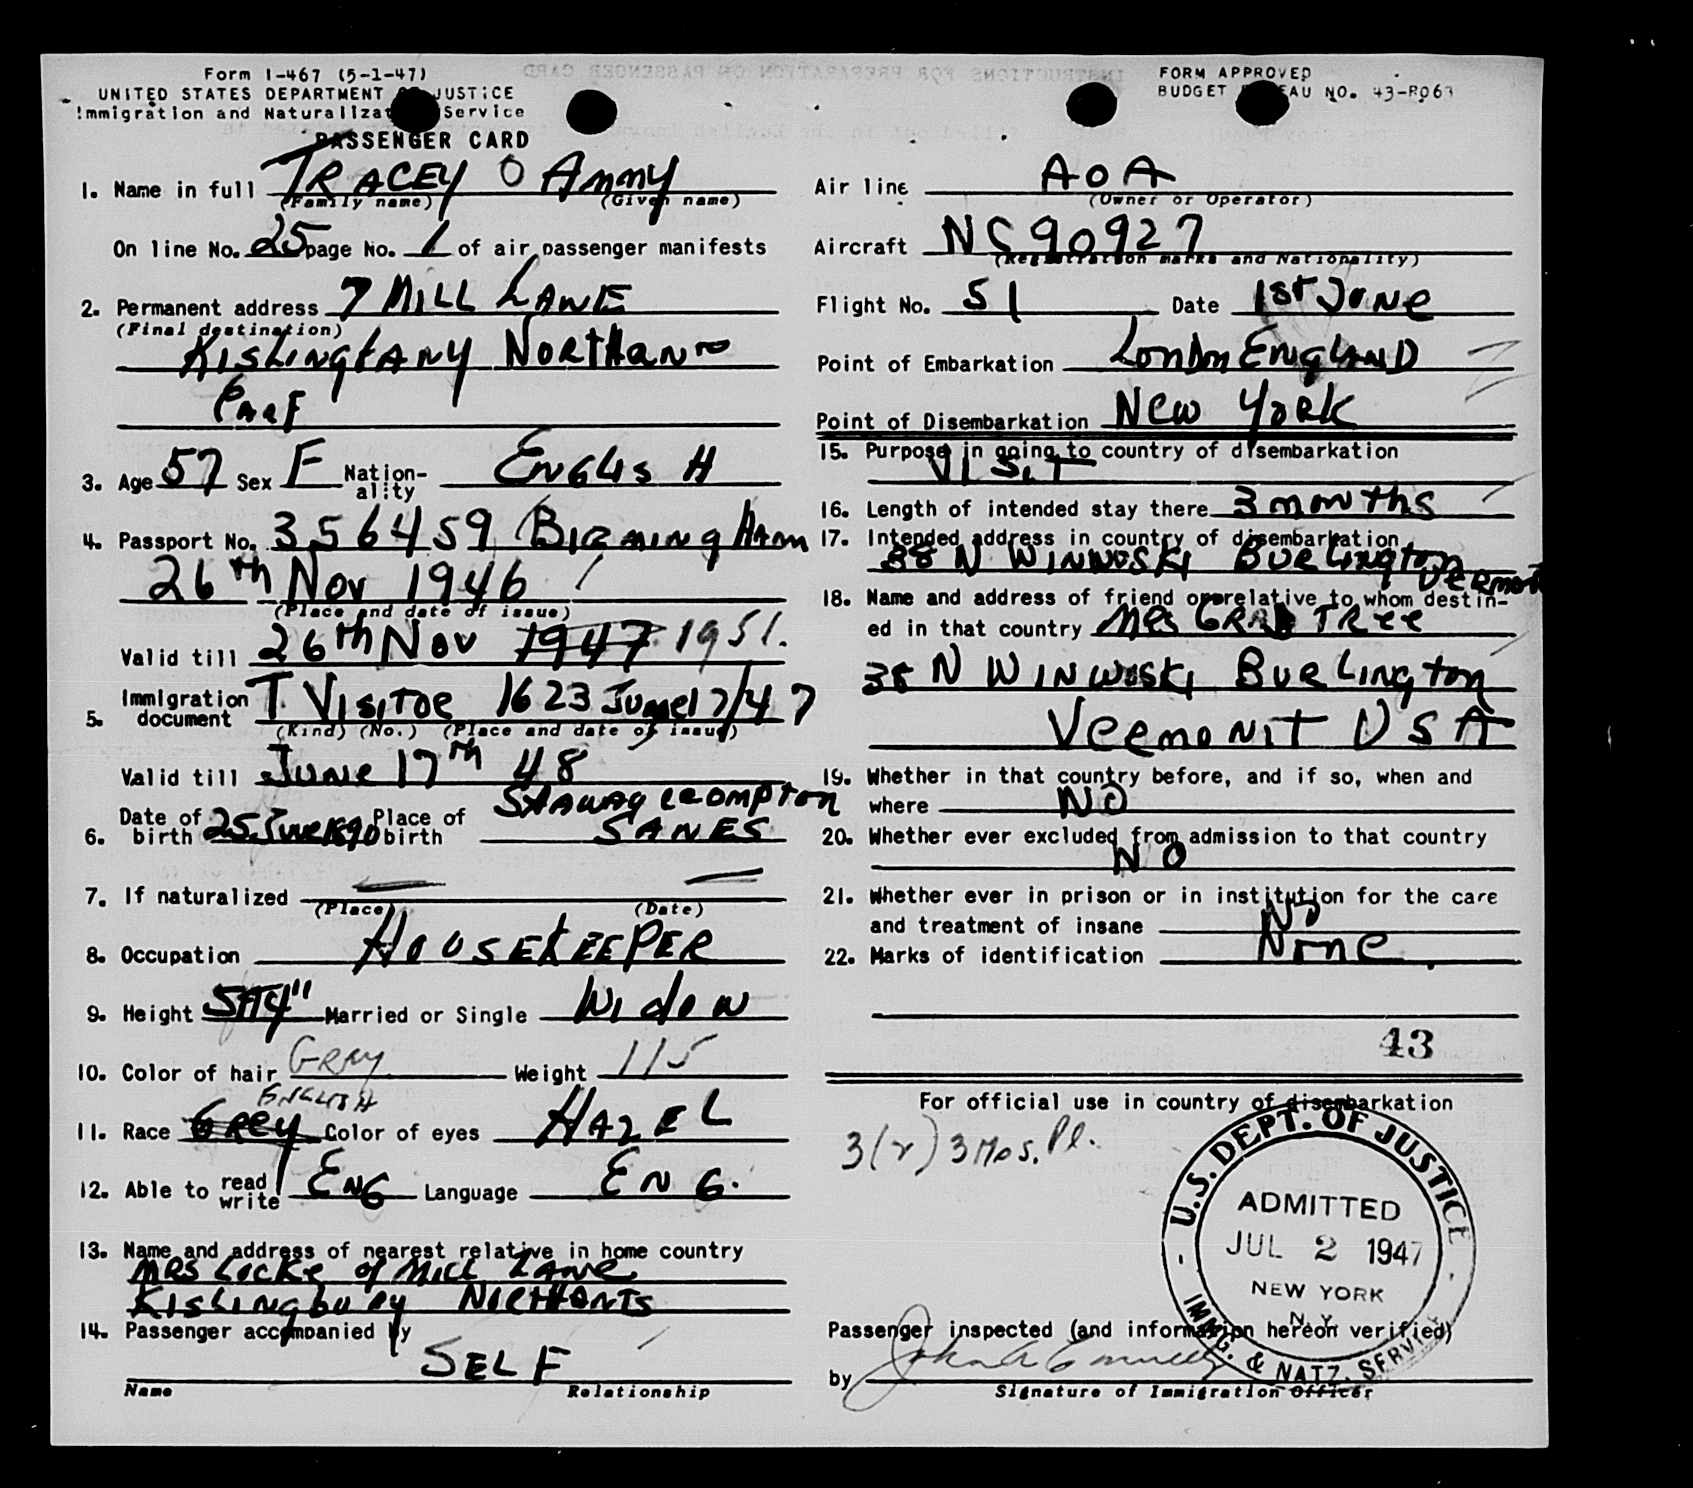 Form I-467 (5-1-47)
UNITED STATES DEPARTMENT OF JUSTICE
Immigration and Naturalization Service
PASSENGER CARD
1. Name in full TRACEY O AMMY
(Family name) (Given name)
On line No. 25 page No. 1 of air passenger manifests
2. Permanent address 7 MILL LANE
(Final destination)
NORTHAN
3. Age 57 Sex F Nationality ENGLISH
4. Passport No. 356459 BIRMINGHAM
26th Nov 1946
(Place and date of issue)
Valid till 26th Nov 1947 1951.
5. Immigration document T. VISITOR 1623 June 17/47
(Kind) (No.) (Place and date of issue)
Valid till JUNE 17th 48
6. Date of birth 25 June 1890 Place of birth
7. If naturalized — —
(Place) (Date)
8. Occupation HOUSEKEEPER
9. Height Married or Single Widow
10. Color of hair Gray Weight 115
ENGLISH
11. Race GREY Color of eyes HAZEL
12. Able to read write ENG Language ENG.
13. Name and address of nearest relative in home country
MRS LOCKE of MILL LANE
KISLINGBURY NORTHANTS
14. Passenger accompanied by
SELF
Name Relationship
FORM APPROVED
BUDGET BUREAU NO. 43-R063
Air line AOA
(Owner or Operator)
Aircraft NC90927
(Registration marks and Nationality)
Flight No. 51 Date 1st June
Point of Embarkation London ENGLAND
Point of Disembarkation New YORK
15. Purpose in going to country of disembarkation
VISIT
16. Length of intended stay there 3 months
17. Intended address in country of disembarkation
38 N WINNOSKI BURLINGTON VERMONT
18. Name and address of friend or relative to whom destin-
ed in that country MRS TREE
38 N WINWOSKI BURLINGTON
VERMONIT USA
19. Whether in that country before, and if so, when and
where NO
20. Whether ever excluded from admission to that country
NO
21. Whether ever in prison or in institution for the care
and treatment of insane NO
22. Marks of identification None
43
For official use in country of disembarkation
3(r) 3 Mos. Pl.
U.S. DEPT. OF JUSTICE
ADMITTED
JUL 2 1947
NEW YORK
N.Y.
IMMG. & NATZ. SERVICE
Passenger inspected (and information hereon verified)
by
Signature of Immigration Officer